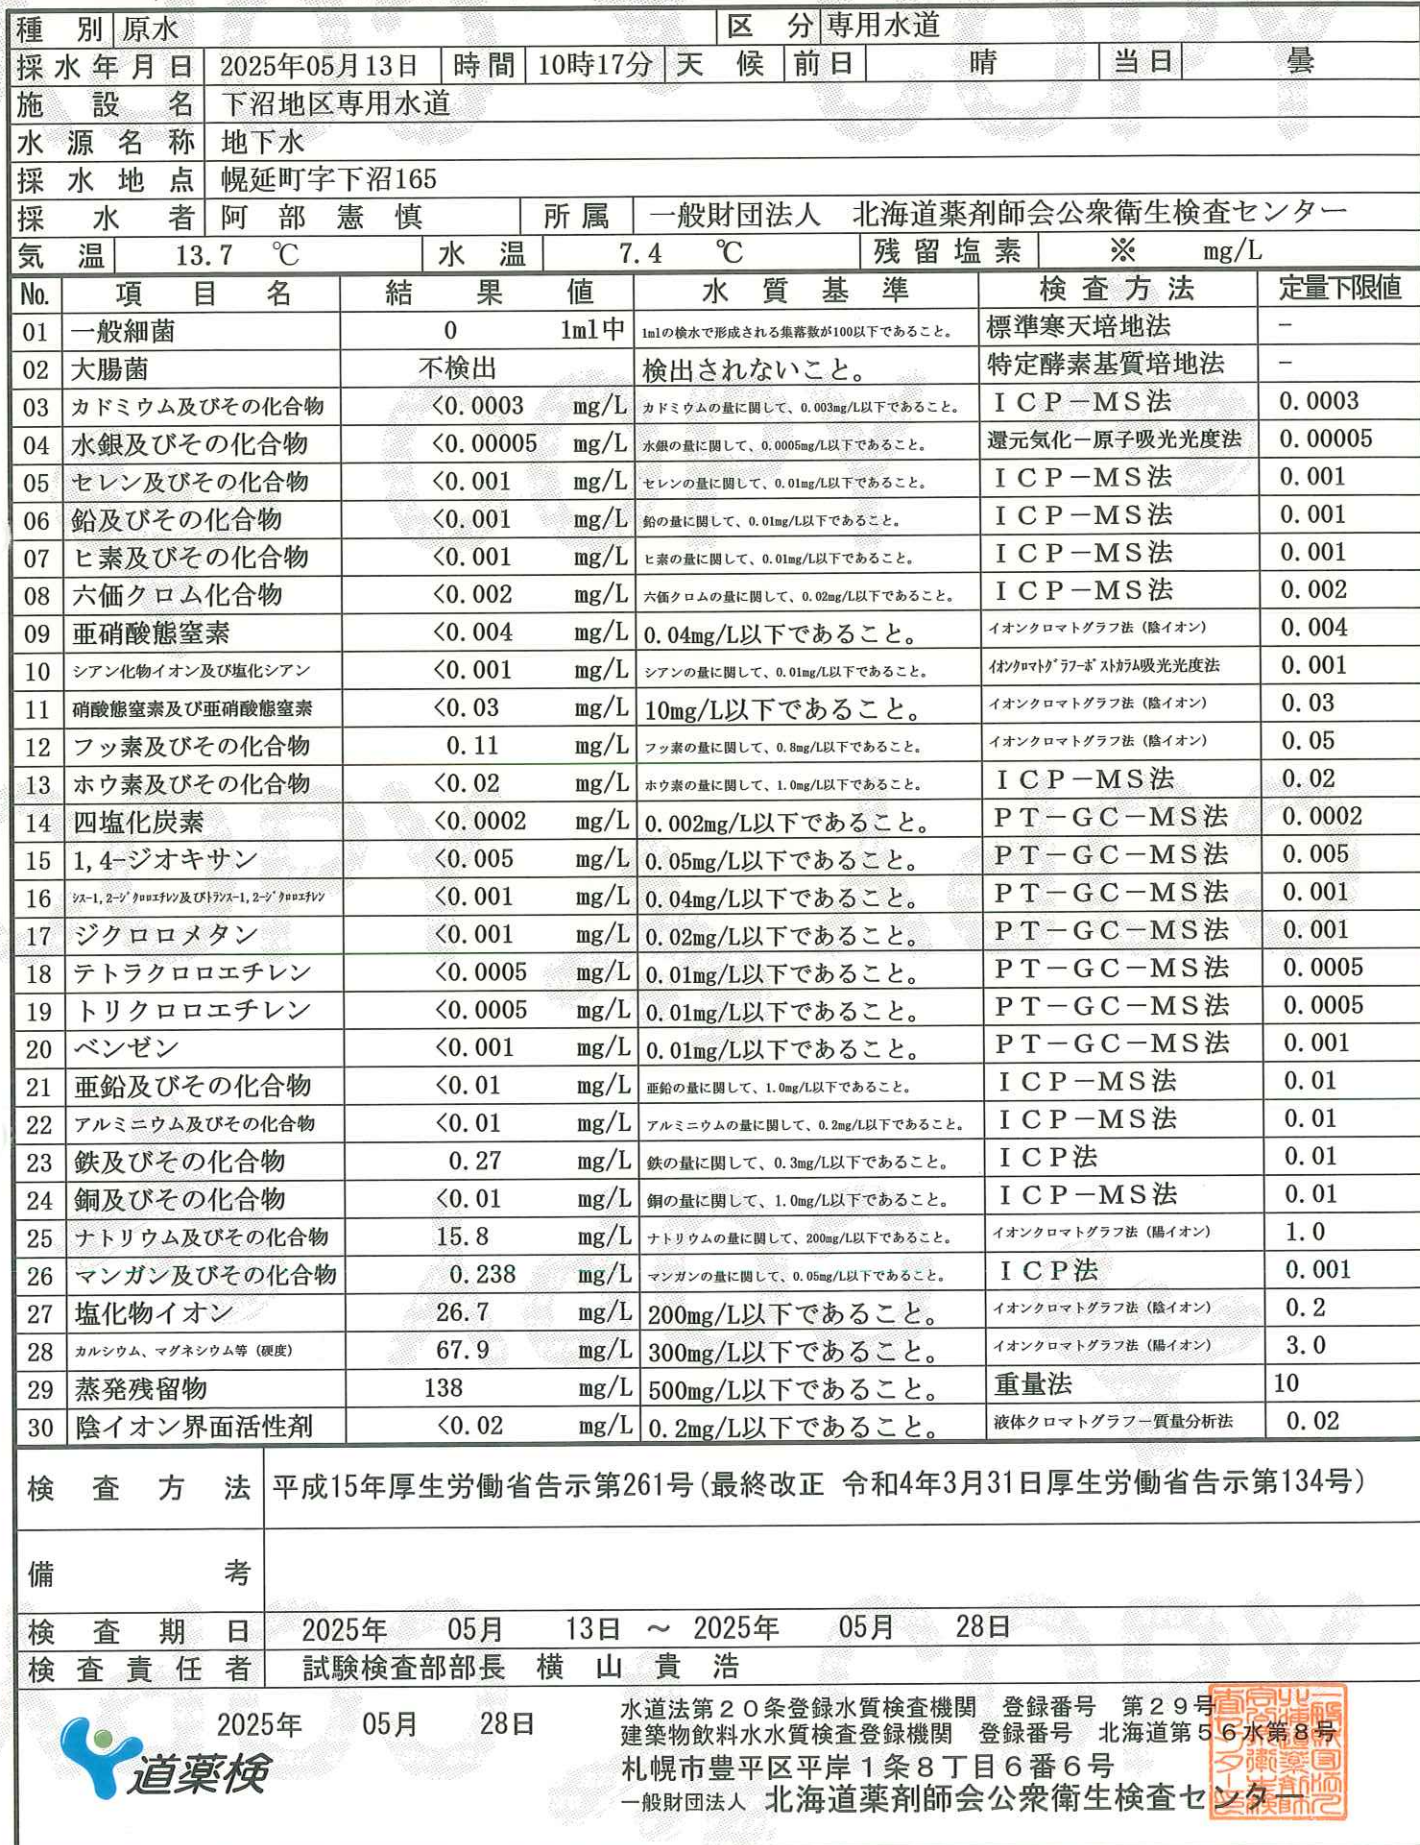 種別 原水 区分 専用水道
採水年月日 2025年05月13日 時間 10時17分 天候 前日 晴 当日 曇
施設名 下沼地区専用水道
水源名称 地下水
採水地点 幌延町字下沼165
採水者 阿部憲慎 所属 一般財団法人 北海道薬剤師会公衆衛生検査センター
気温 13.7 ℃ 水温 7.4 ℃ 残留塩素 ※ mg/L
No. 項目名 結果値 水質基準 検査方法 定量下限値
01 一般細菌 0 1ml中 1mlの検水で形成される集落数が100以下であること。 標準寒天培地法 −
02 大腸菌 不検出 検出されないこと。 特定酵素基質培地法 −
03 カドミウム及びその化合物 <0.0003 mg/L カドミウムの量に関して、0.003mg/L以下であること。 ICP−MS法 0.0003
04 水銀及びその化合物 <0.00005 mg/L 水銀の量に関して、0.0005mg/L以下であること。 還元気化−原子吸光光度法 0.00005
05 セレン及びその化合物 <0.001 mg/L セレンの量に関して、0.01mg/L以下であること。 ICP−MS法 0.001
06 鉛及びその化合物 <0.001 mg/L 鉛の量に関して、0.01mg/L以下であること。 ICP−MS法 0.001
07 ヒ素及びその化合物 <0.001 mg/L ヒ素の量に関して、0.01mg/L以下であること。 ICP−MS法 0.001
08 六価クロム化合物 <0.002 mg/L 六価クロムの量に関して、0.02mg/L以下であること。 ICP−MS法 0.002
09 亜硝酸態窒素 <0.004 mg/L 0.04mg/L以下であること。 イオンクロマトグラフ法（陰イオン） 0.004
10 シアン化物イオン及び塩化シアン <0.001 mg/L シアンの量に関して、0.01mg/L以下であること。 ｲｵﾝｸﾛﾏﾄｸﾞﾗﾌｰﾎﾟｽﾄｶﾗﾑ吸光光度法 0.001
11 硝酸態窒素及び亜硝酸態窒素 <0.03 mg/L 10mg/L以下であること。 イオンクロマトグラフ法（陰イオン） 0.03
12 フッ素及びその化合物 0.11 mg/L フッ素の量に関して、0.8mg/L以下であること。 イオンクロマトグラフ法（陰イオン） 0.05
13 ホウ素及びその化合物 <0.02 mg/L ホウ素の量に関して、1.0mg/L以下であること。 ICP−MS法 0.02
14 四塩化炭素 <0.0002 mg/L 0.002mg/L以下であること。 PT−GC−MS法 0.0002
15 1,4-ジオキサン <0.005 mg/L 0.05mg/L以下であること。 PT−GC−MS法 0.005
16 ｼｽ-1,2-ｼﾞｸﾛﾛｴﾁﾚﾝ及びﾄﾗﾝｽ-1,2-ｼﾞｸﾛﾛｴﾁﾚﾝ <0.001 mg/L 0.04mg/L以下であること。 PT−GC−MS法 0.001
17 ジクロロメタン <0.001 mg/L 0.02mg/L以下であること。 PT−GC−MS法 0.001
18 テトラクロロエチレン <0.0005 mg/L 0.01mg/L以下であること。 PT−GC−MS法 0.0005
19 トリクロロエチレン <0.0005 mg/L 0.01mg/L以下であること。 PT−GC−MS法 0.0005
20 ベンゼン <0.001 mg/L 0.01mg/L以下であること。 PT−GC−MS法 0.001
21 亜鉛及びその化合物 <0.01 mg/L 亜鉛の量に関して、1.0mg/L以下であること。 ICP−MS法 0.01
22 アルミニウム及びその化合物 <0.01 mg/L アルミニウムの量に関して、0.2mg/L以下であること。 ICP−MS法 0.01
23 鉄及びその化合物 0.27 mg/L 鉄の量に関して、0.3mg/L以下であること。 ICP法 0.01
24 銅及びその化合物 <0.01 mg/L 銅の量に関して、1.0mg/L以下であること。 ICP−MS法 0.01
25 ナトリウム及びその化合物 15.8 mg/L ナトリウムの量に関して、200mg/L以下であること。 イオンクロマトグラフ法（陽イオン） 1.0
26 マンガン及びその化合物 0.238 mg/L マンガンの量に関して、0.05mg/L以下であること。 ICP法 0.001
27 塩化物イオン 26.7 mg/L 200mg/L以下であること。 イオンクロマトグラフ法（陰イオン） 0.2
28 カルシウム、マグネシウム等（硬度） 67.9 mg/L 300mg/L以下であること。 イオンクロマトグラフ法（陽イオン） 3.0
29 蒸発残留物 138 mg/L 500mg/L以下であること。 重量法 10
30 陰イオン界面活性剤 <0.02 mg/L 0.2mg/L以下であること。 液体クロマトグラフー質量分析法 0.02
検査方法 平成15年厚生労働省告示第261号(最終改正 令和4年3月31日厚生労働省告示第134号)
備考
検査期日 2025年 05月 13日 ～ 2025年 05月 28日
検査責任者 試験検査部部長 横山貴浩
2025年 05月 28日
水道法第20条登録水質検査機関 登録番号 第29号
建築物飲料水水質検査登録機関 登録番号 北海道第56水第8号
道薬検
札幌市豊平区平岸1条8丁目6番6号
一般財団法人 北海道薬剤師会公衆衛生検査センター